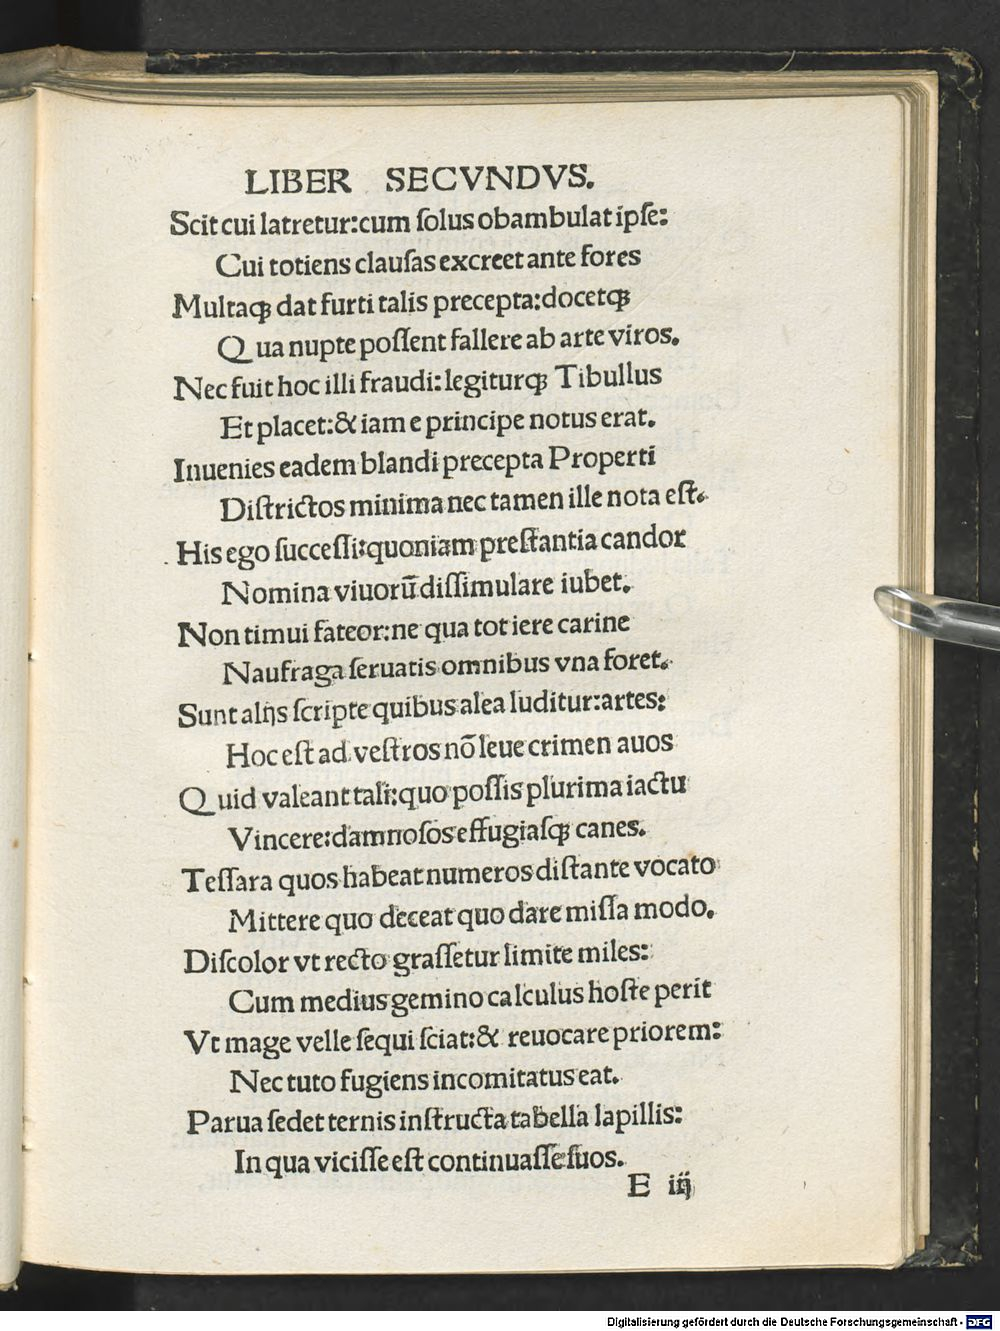 LIBER SECVNDVS.
Scit cui latretur:cum ſolus obambulat ipſe:
Cui totiens clauſas excreet ante fores
Multaqꝫ dat furti talis precepta:docetqꝫ
Qua nupte poſſent fallere ab arte viros.
Nec fuit hoc illi fraudi:legiturqꝫ Tibullus
Et placet:& iam e principe notus erat.
Inuenies eadem blandi precepta Properti
Diſtrictos minima nec tamen ille nota eſt.
His ego ſucceſſi:quoniam preſtantia candor
Nomina viuorū diſſimulare iubet.
Non timui fateor:ne qua tot iere carine
Naufraga ſeruatis omnibus vna foret.
Sunt alijs ſcripte quibus alea luditur:artes:
Hoc eſt ad veſtros nō leue crimen auos
Quid valeant tali:quo poſſis plurima iactu
Vincere:damnoſos effugiaſqꝫ canes.
Teſſara quos habeat numeros diſtante vocato
Mittere quo deceat quo dare miſſa modo.
Diſcolor vt recto graſſetur limite miles:
Cum medius gemino calculus hoſte perit
Vt mage velle ſequi ſciat:& reuocare priorem:
Nec tuto fugiens incomitatus eat.
Parua ſedet ternis inſtructa tabella lapillis:
In qua viciſſe eſt continuaſſe ſuos.
E iij
Digitalisierung gefördert durch die Deutsche Forschungsgemeinschaft - DFG